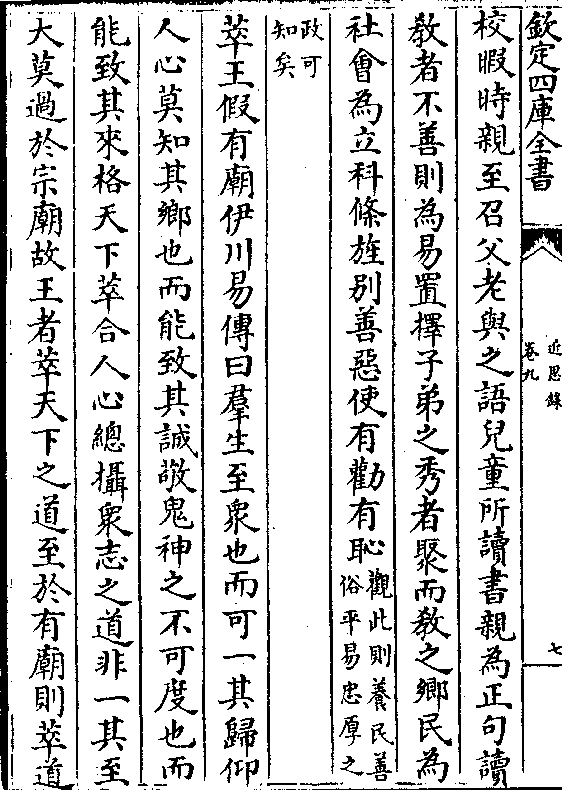 欽定四庫全書
近思錄
卷九
七
校暇時親至召父老與之語兒童所讀書親為正句讀
教者不善則為易置擇子弟之秀者聚而教之鄉民為
社會為立科條旌别善惡使有勸有恥觀此則養民善
俗平易忠厚之
政可
知矣
萃王假有廟伊川易傳曰羣生至衆也而可一其歸仰
人心莫知其鄉也而能致其誠敬鬼神之不可度也而
能致其來格天下萃合人心總攝衆志之道非一其至
大莫過於宗廟故王者萃天下之道至於有廟則萃道